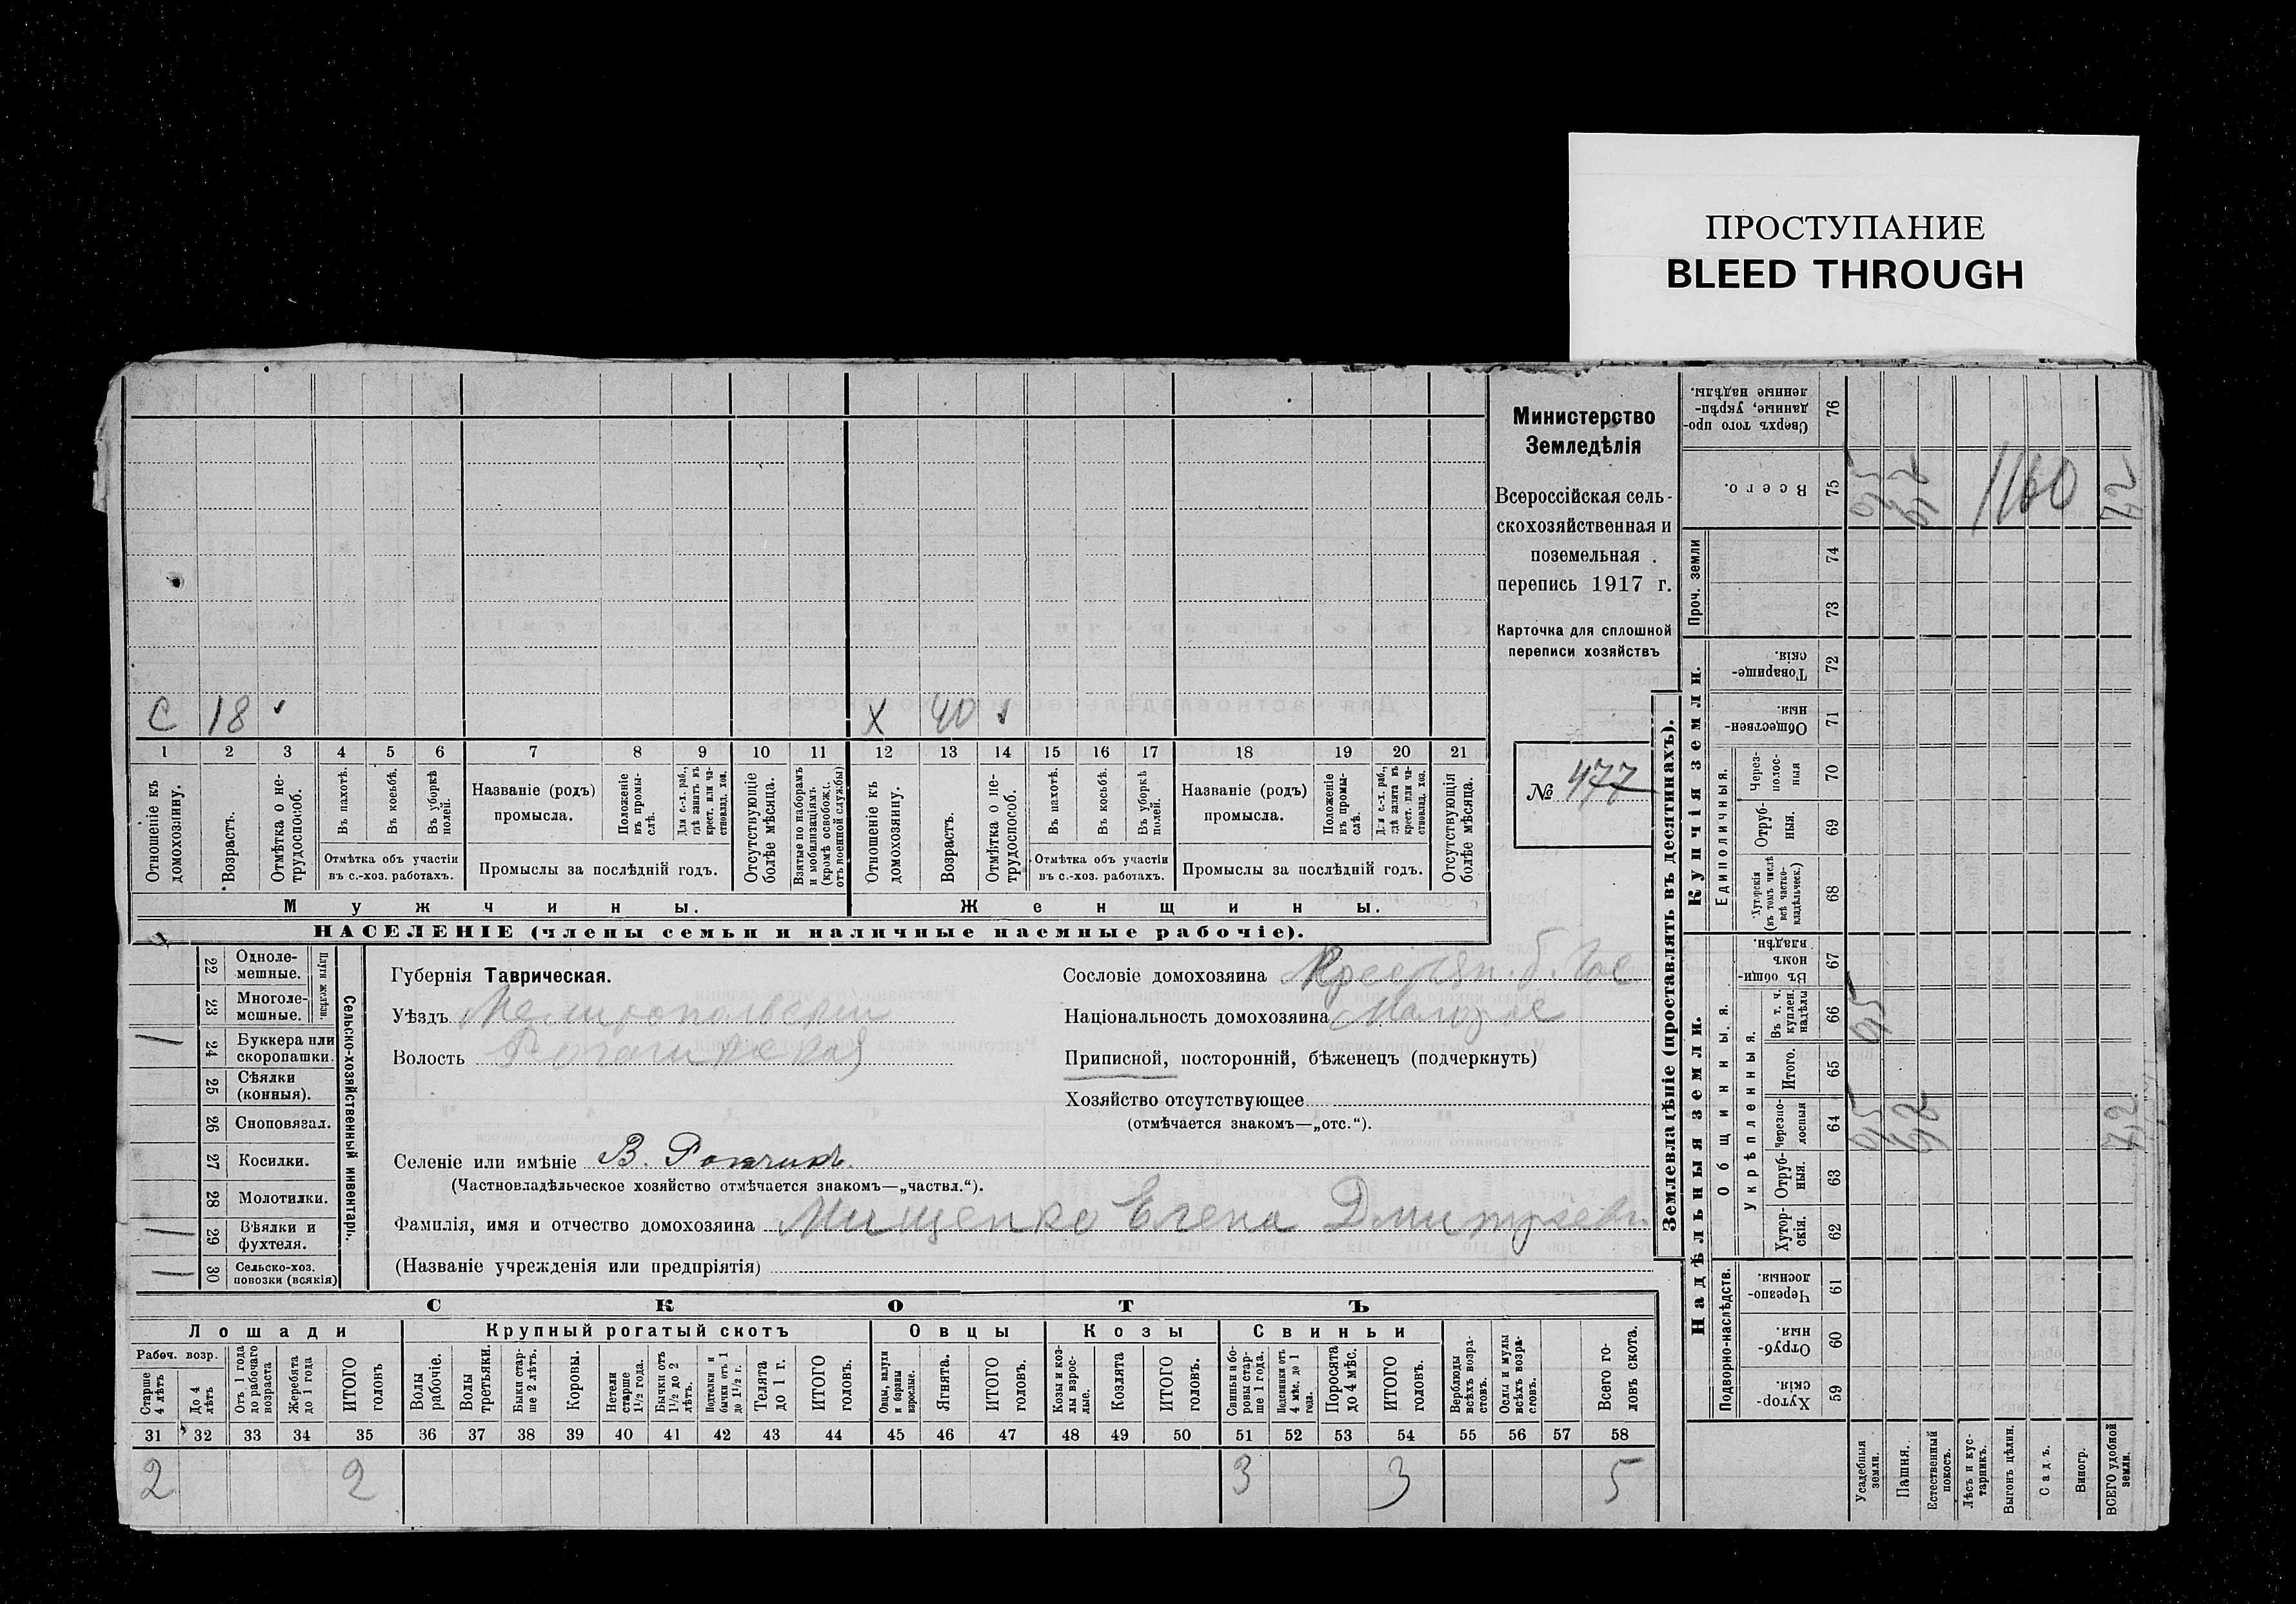 ПРОСТУПАНИЕ
BLEED THROUGH
Министерство
Земледѣлія
Всероссійская сель-
скохозяйственная и
поземельная
перепись 1917 г.
Карточка для сплошной
переписи хозяйствъ
№ 477
С 18
Х 40
1 2 3 4 5 6 7 8 9 10 11 12 13 14 15 16 17 18 19 20 21
Отношеніе къ домохозяину.
Возрастъ.
Отмѣтка о не-трудоспособ.
Въ пахотѣ.
Въ косьбѣ.
Въ уборкѣ полей.
Отмѣтка объ участіи
въ с.-хоз. работахъ.
Названіе (родъ)
промысла.
Положеніе въ промы-слѣ.
Для с.-х. раб., гдѣ занятъ въ крест. или ча-стновлад. хоз.
Промыслы за послѣдній годъ.
Отсутствующіе болѣе мѣсяца.
Взятые по наборамъ и мобилизаціямъ. (кромѣ освобожд. отъ военной службы)
Отношеніе къ домохозяину.
Возрастъ.
Отмѣтка о не-трудоспособ.
Въ пахотѣ.
Въ косьбѣ.
Въ уборкѣ полей.
Отмѣтка объ участіи
въ с.-хоз. работахъ.
Названіе (родъ)
промысла.
Положеніе въ промы-слѣ.
Для с.-х. раб., гдѣ занята въ крест. или ча-стновлад. хоз.
Промыслы за послѣдній годъ.
Отсутствующія болѣе мѣсяца.
Мужчины.
Женщины.
НАСЕЛЕНІЕ (члены семьи и наличные наемные рабочіе).
Сельско-хозяйственный инвентарь.
Плуги желѣзн.
22 Одноле-мешные.
23 Многоле-мешные.
24 Буккера или скоропашки.
25 Сѣялки (конныя).
26 Сноповязал.
27 Косилки.
28 Молотилки.
29 Вѣялки и фухтеля.
30 Сельско-хоз. повозки (всякія)
Губернія Таврическая.
Уѣздъ Мелитопольскій
Волость
Сословіе домохозяина
Національность домохозяина Малорос
Приписной, посторонній, бѣженецъ (подчеркнуть)
Хозяйство отсутствующее
(отмѣчается знакомъ—„отс.“).
Селеніе или имѣніе В.
(Частновладѣльческое хозяйство отмѣчается знакомъ—„частвл.“).
Фамилія, имя и отчество домохозяина Мищенко Елена Дмитріевн
(Названіе учрежденія или предпріятія)
СКОТЪ
Лошади
Крупный рогатый скотъ
Овцы
Козы
Свиньи
Рабоч. возр.
Старше 4 лѣтъ
До 4 лѣтъ
Отъ 1 года до рабочаго возраста
Жеребята до 1 года
ИТОГО головъ
Волы рабочіе.
Волы третьяки.
Быки стар-ше 2 лѣтъ.
Коровы.
Нетели старше 1½ года.
Бычки отъ 1½ до 2 лѣтъ.
Подтелки и бычки отъ 1 до 1½ г.
Телята до 1 г.
ИТОГО головъ.
Овцы, валухи и бараны взрослые.
Ягнята.
ИТОГО головъ.
Козы и коз-лы взрос-лые.
Козлята
ИТОГО головъ.
Свиньи и бо-ровы стар-ше 1 года.
Подсвинки отъ 4 мѣс. до 1 года.
Поросята до 4 мѣс.
ИТОГО головъ.
Верблюды всѣхъ возра-стовъ.
Ослы и мулы всѣхъ возра-стовъ.
Всего го-ловъ скота.
31 32 33 34 35 36 37 38 39 40 41 42 43 44 45 46 47 48 49 50 51 52 53 54 55 56 57 58
2 2 3 3 5
Землевладѣніе (проставлять въ десятинахъ).
Купчія земли.
Надѣльныя земли.
Сверхъ того про-данные, укрѣп-ленные надѣлы. 76
Всего. 75
1160
Проч. земли 74 73
Товарище-скія. 72
Обществен-ныя. 71
Единоличныя.
Через-полос-ныя 70
Отруб-ныя. 69
Хуторскія (въ томъ числѣ всѣ частно-владѣльческ.) 68
Общинныя.
Въ общи-номъ владѣн. 67
Укрѣпленныя.
Въ т. ч. куплен. надѣлы 66
Итого. 65
Черезпо-лосныя 64
Отруб-ныя. 63
Хутор-скія. 62
Подворно-наслѣдств.
Черезпо-лосныя. 61
Отруб-ныя. 60
Хутор-скія. 59
Усадебныя земли.
Пашня.
Естественный покосъ.
Лѣсъ и кус-тарникъ.
Выгонъ цѣлин.
Садъ.
Виногр.
ВСЕГО удобной земли.